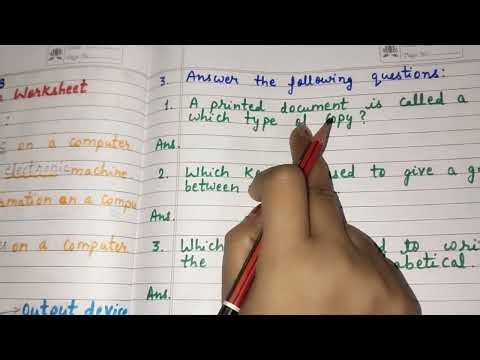 Worksheet
on a computer
electronic machine
on a compu
on a computer
→ Output device
3. Answer the following questions:
1. A printed document is called a
which type of copy?
Ans.
2. Which used to give a
between
Ans.
3. Which to
the
Ans.